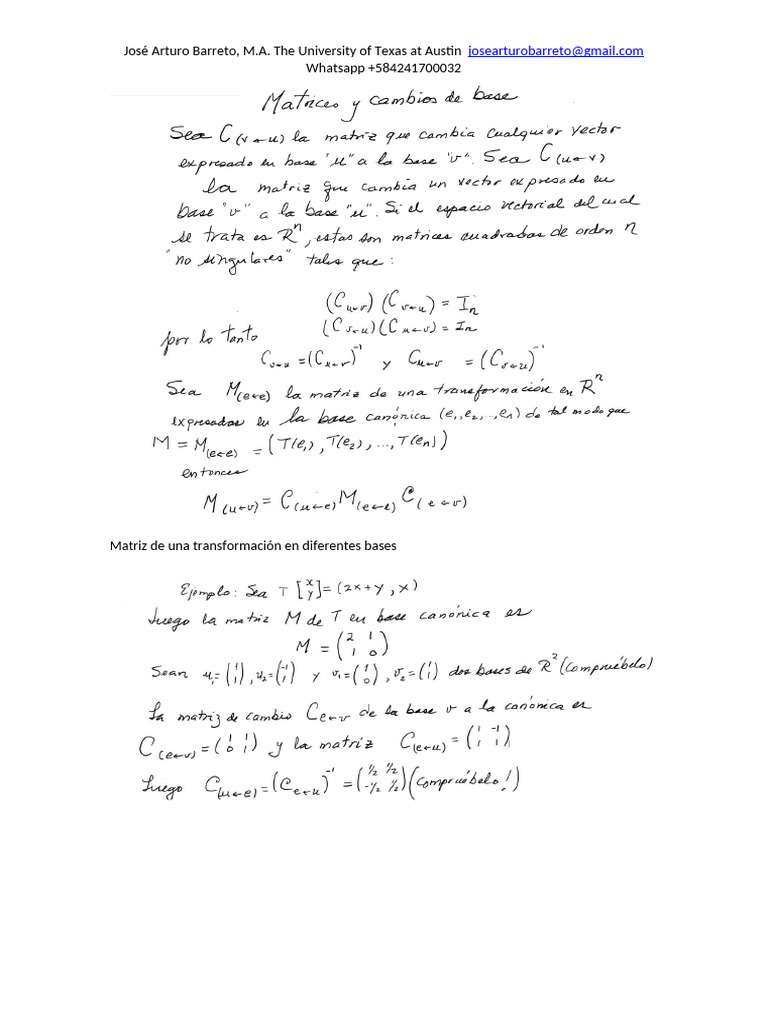 José Arturo Barreto, M.A. The University of Texas at Austin josearturobarreto@gmail.com
Whatsapp +584241700032
Matrices y cambios de base
Sea C(v←u) la matriz que cambia cualquier vector
expresado en base "u" a la base "v". Sea C(u←v)
la matriz que cambia un vector expresado en
base "v" a la base "u". Si el espacio vectorial del cual
se trata es Rⁿ, estas son matrices cuadradas de orden n
"no singulares" tales que:
(C u←v) (C v←u) = In
(C v←u) (C u←v) = In
por lo tanto
C v←u = (C u←v)⁻¹ y C u←v = (C v←u)⁻¹
Sea M(e←e) la matriz de una transformación en Rⁿ
expresadas en la base canónica (e1, e2, ..., en) de tal modo que
M = M(e←e) = (T(e1), T(e2), ..., T(en))
entonces
M(u←v) = C(u←e) M(e←e) C(e←v)
Matriz de una transformación en diferentes bases
Ejemplo: Sea T [x y] = (2x+y, x)
Luego la matriz M de T en base canónica es
M = (2 1 / 1 0)
Sean u1 = (1 1), u2 = (-1 1) y v1 = (1 0), v2 = (1 1) dos bases de R² (compruébelo)
La matriz de cambio C e←v de la base v a la canónica es
C(e←v) = (1 1 / 0 1) y la matriz C(e←u) = (1 -1 / 1 1)
Luego C(u←e) = (C e←u)⁻¹ = (1/2 1/2 / -1/2 1/2) (compruébelo!)